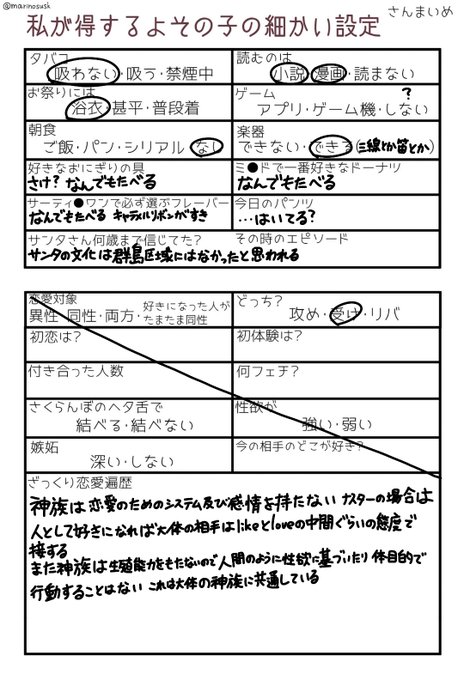 @mairinosusk
私が得するよその子の細かい設定
さんまいめ
タバコ
吸わない・吸う・禁煙中
読むのは
小説・漫画・読まない
お祭りには
浴衣・甚平・普段着
ゲーム
?
アプリ・ゲーム機・しない
朝食
ご飯・パン・シリアル・ない
楽器
できない・できる(三線とか笛とか)
好きなおにぎりの具
さけ? なんでもたべる
ミ●ドで一番好きなドーナツ
なんでもたべる
サーティ●ワンで必ず選ぶフレーバー
なんでもたべる キャラメルリボンがすき
今日のパンツ
…はいてる?
サンタさん何歳まで信じてた?
その時のエピソード
サンタの文化は群島区域にはなかったと思われる
恋愛対象
異性・同性・両方・好きになった人が
たまたま同性
どっち?
攻め・受け・リバ
初恋は?
初体験は?
付き合った人数
何フェチ?
さくらんぼのヘタ舌で
結べる・結べない
性欲が
強い・弱い
嫉妬
深い・しない
今の相手のどこが好き?
ざっくり恋愛遍歴
神族は恋愛のためのシステム及び感情を持たない ナスターの場合は
人として好きになれば大体の相手はlikeとloveの中間ぐらいの態度で
接する
また神族は生殖能力をもたないので人間のように性欲に基づいたり 体目的で
行動することはない これは大体の神族に共通している